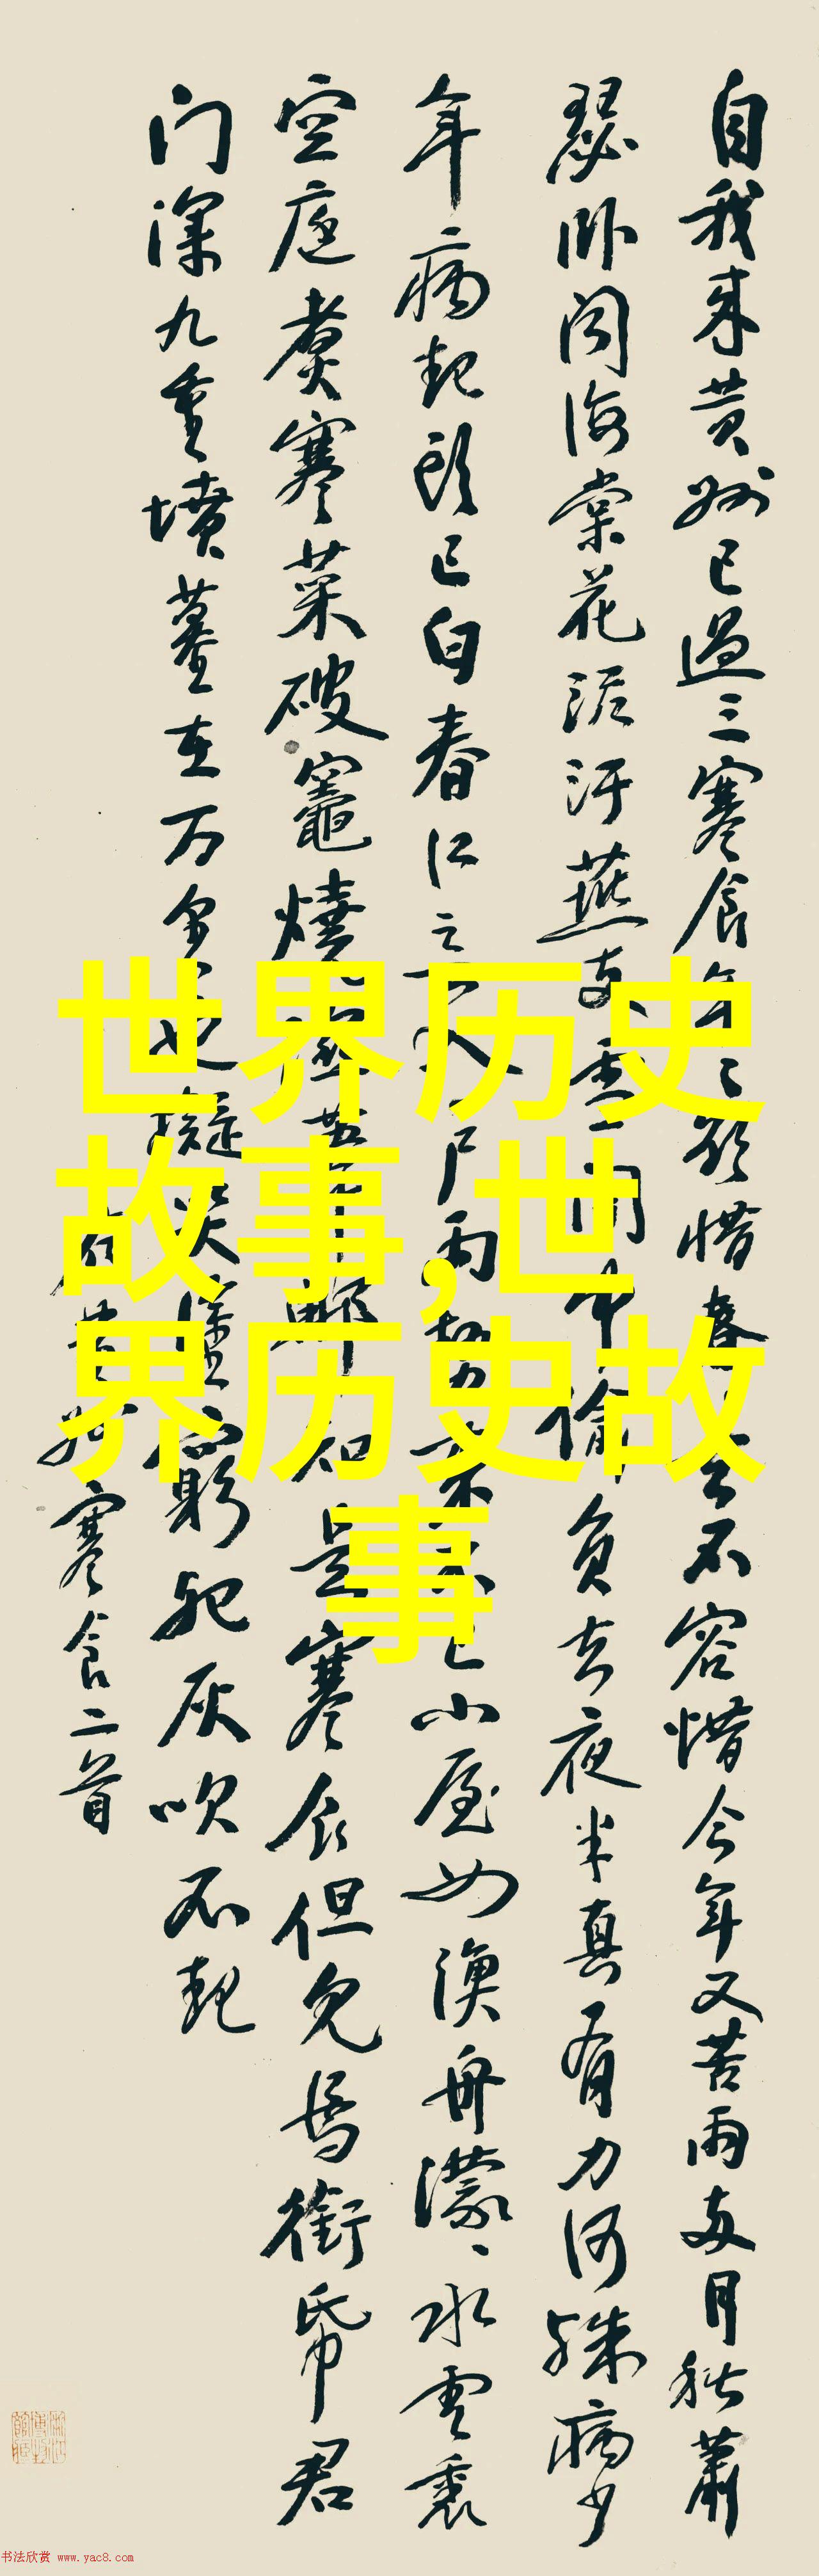 自我来黄州已過三寒食年〻欲惜春去不容惜今年又苦雨两月秋蕭
瑟卧闻海棠花泥汙燕支雪闇中偷負去夜半真有力何殊病少
年病起頭已白春江入户雨勢来不已小屋如漁舟濛〻水雲裏
空庖煮寒菜破竈燒濕葦那知是寒食但見烏銜帋君
门深九重墳墓在万里也擬哭塗窮死灰吹不起
右黄州寒食二首
世界历史
故事,世
界历史故
事
书法欣赏 www.yac8.com